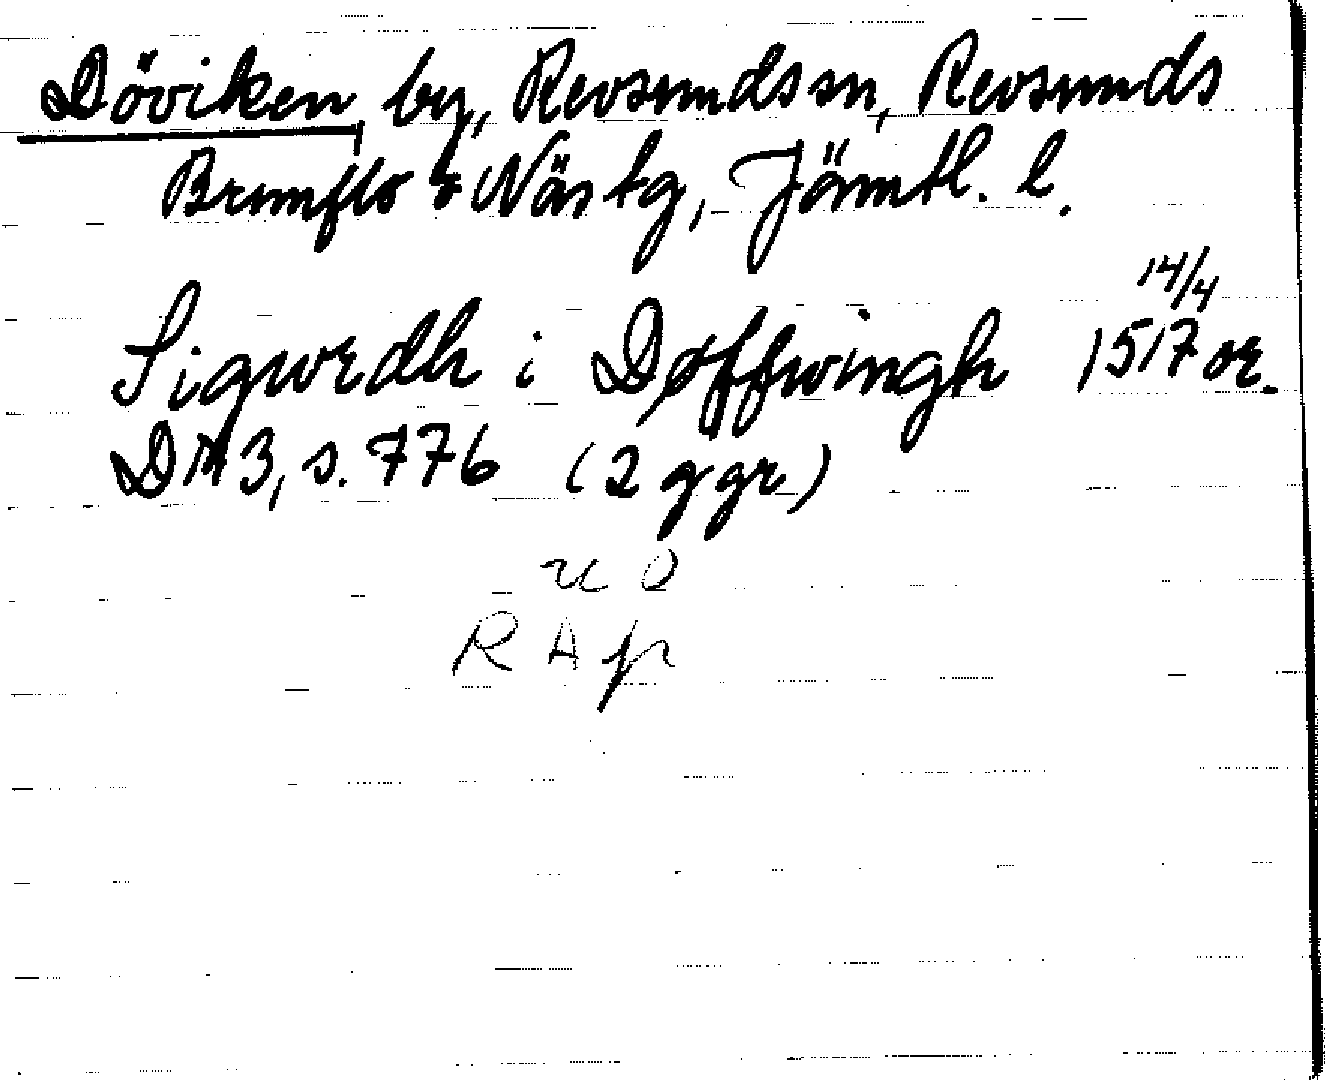 Döviken, by, Revsunds sn, Revsunds
Brunflo & Näs tg, Jämtl. l.
14/4
Sigwrdh i Døffwingh 1517 or.
DN 3, s. 776 (2 ggr.)
RAp